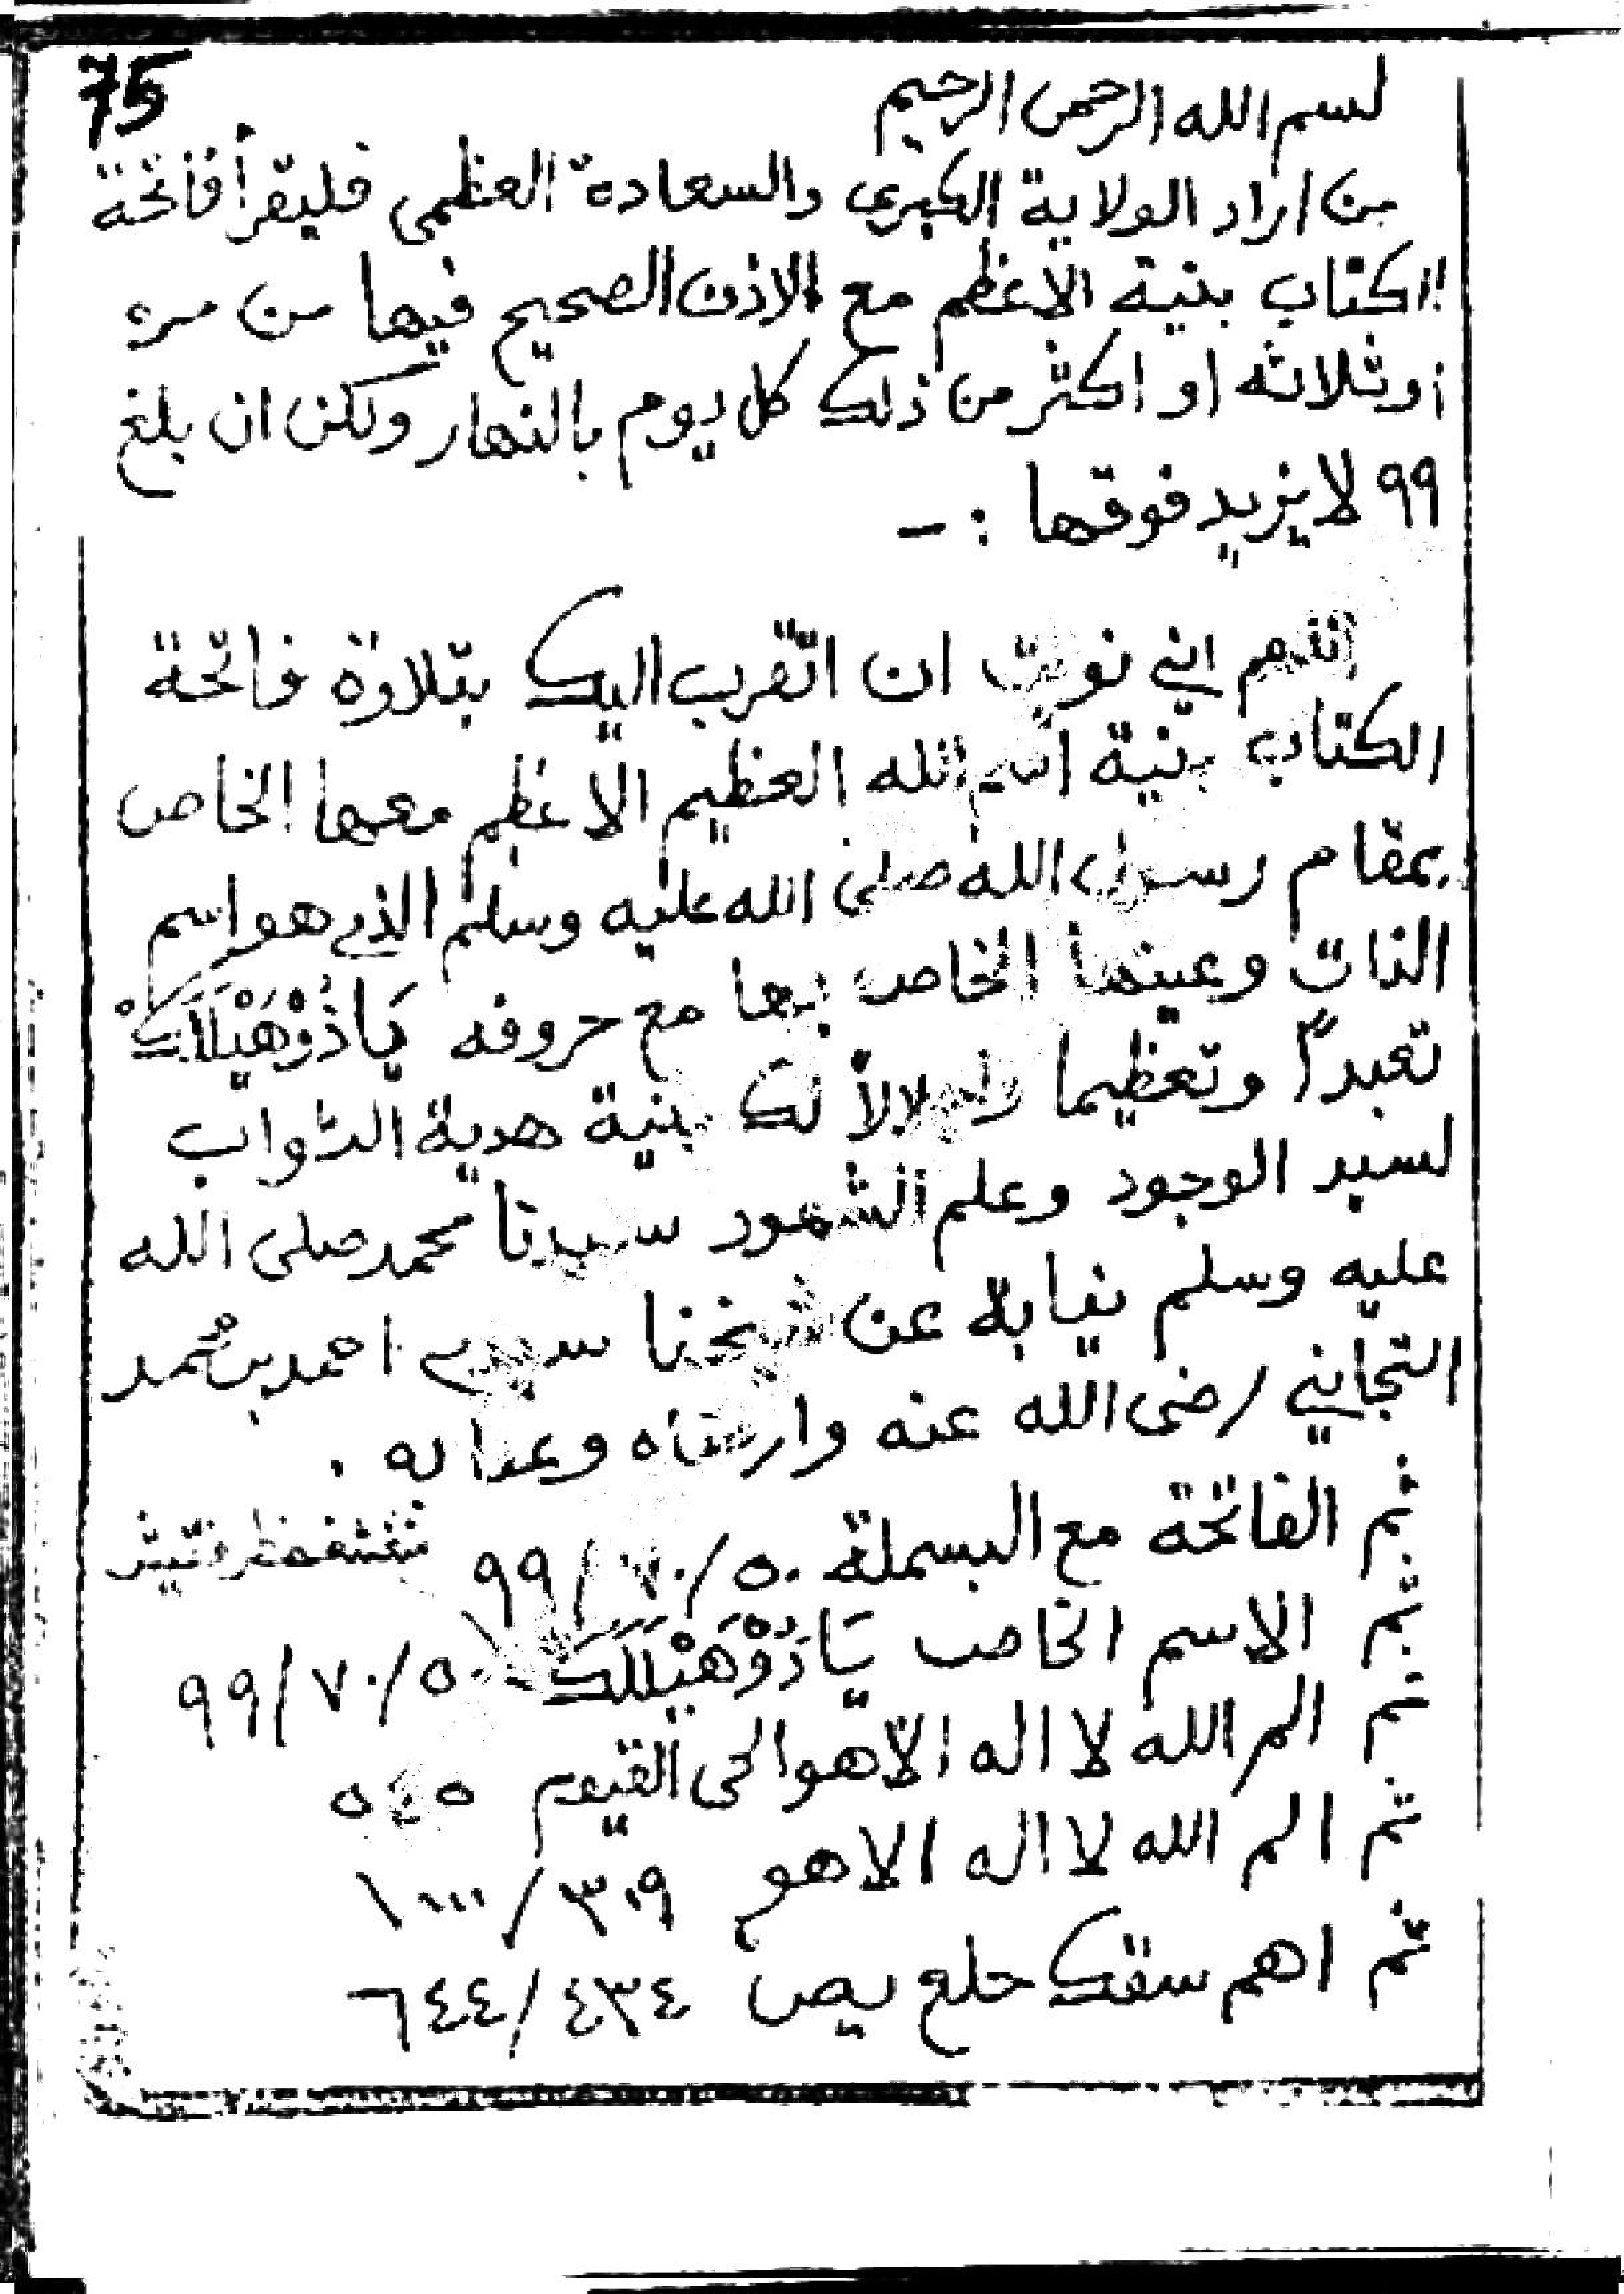 75
بسم الله الرحمن الرحيم
من اراد الولاية الكبرى والسعادة العظمى فليقرأ فاتحة
الكتاب بنية الاعظم مع الاذن الصحيح فيها من مرة
أو ثلاثه او اكثر من ذلك كل يوم بالنهار ولكن ان بلغ
٩٩ لا يزيد فوقها : -
اللهم اني نويت ان اتقرب اليك بتلاوة فاتحة
الكتاب بنية اسم الله العظيم الاعظم معها الخاص
بمقام رسول الله صلى الله عليه وسلم الذي هو اسم
الذات وعينها الخاص بها مع حروفه
تعبداً وتعظيما واجلالاً لك بنية هدية الثواب
لسيد الوجود وعلم الشهود سيدنا محمد صلى الله
عليه وسلم نيابة عن شيخنا سيدي احمد بن محمد
التجاني رضى الله عنه وارضاه وعنا به .
ثم الفاتحة مع البسملة ٥٠/٧٠/٩٩
ثم الاسم الخاص ٥٠/٧٠/٩٩
ثم الم الله لا اله الا هو الحى القيوم ٥٤٥
ثم الم الله لا اله الا هو ٣٠٩/١٠٠٠
ثم اهم سقك حلع يص ٤٣٤/٦٤٤